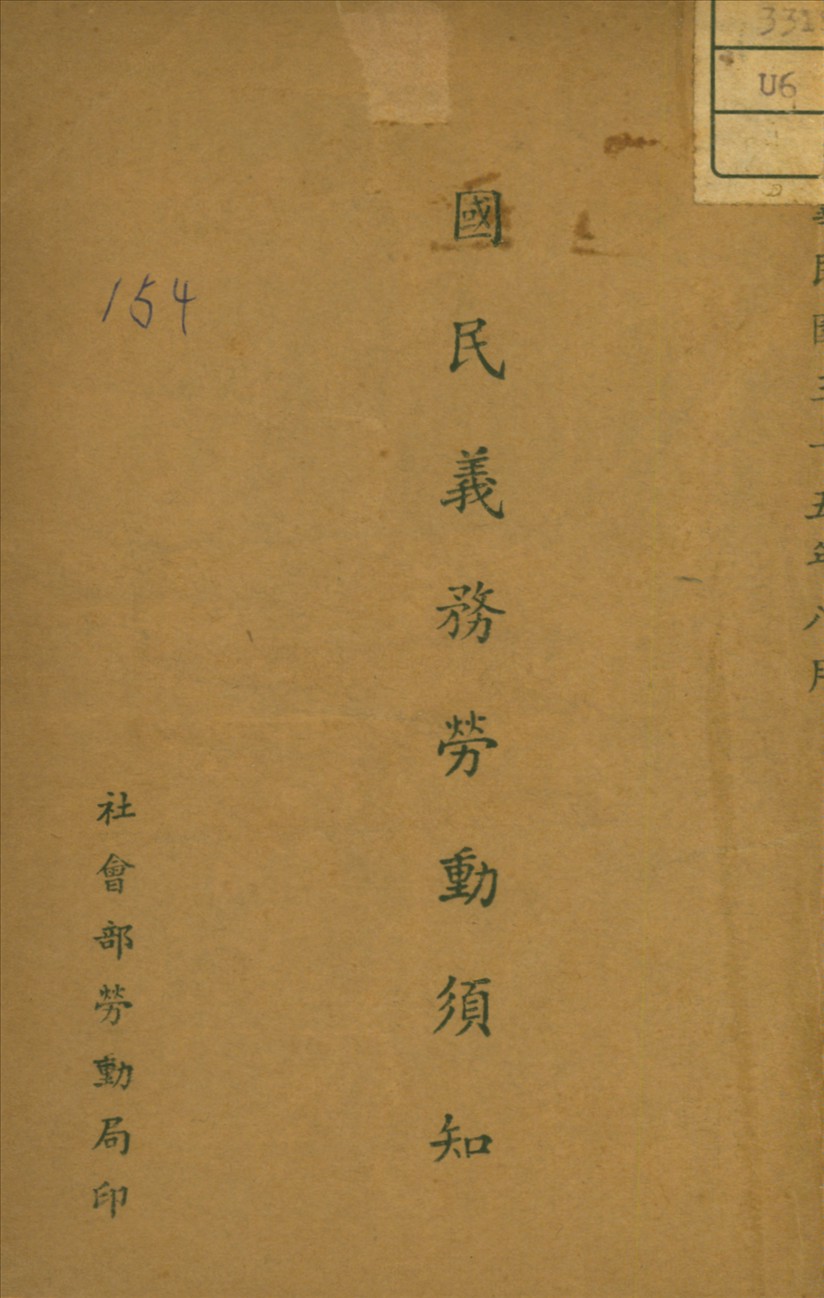 民國三十五年八月
國民義務勞動須知
社會部勞動局印
154
U6